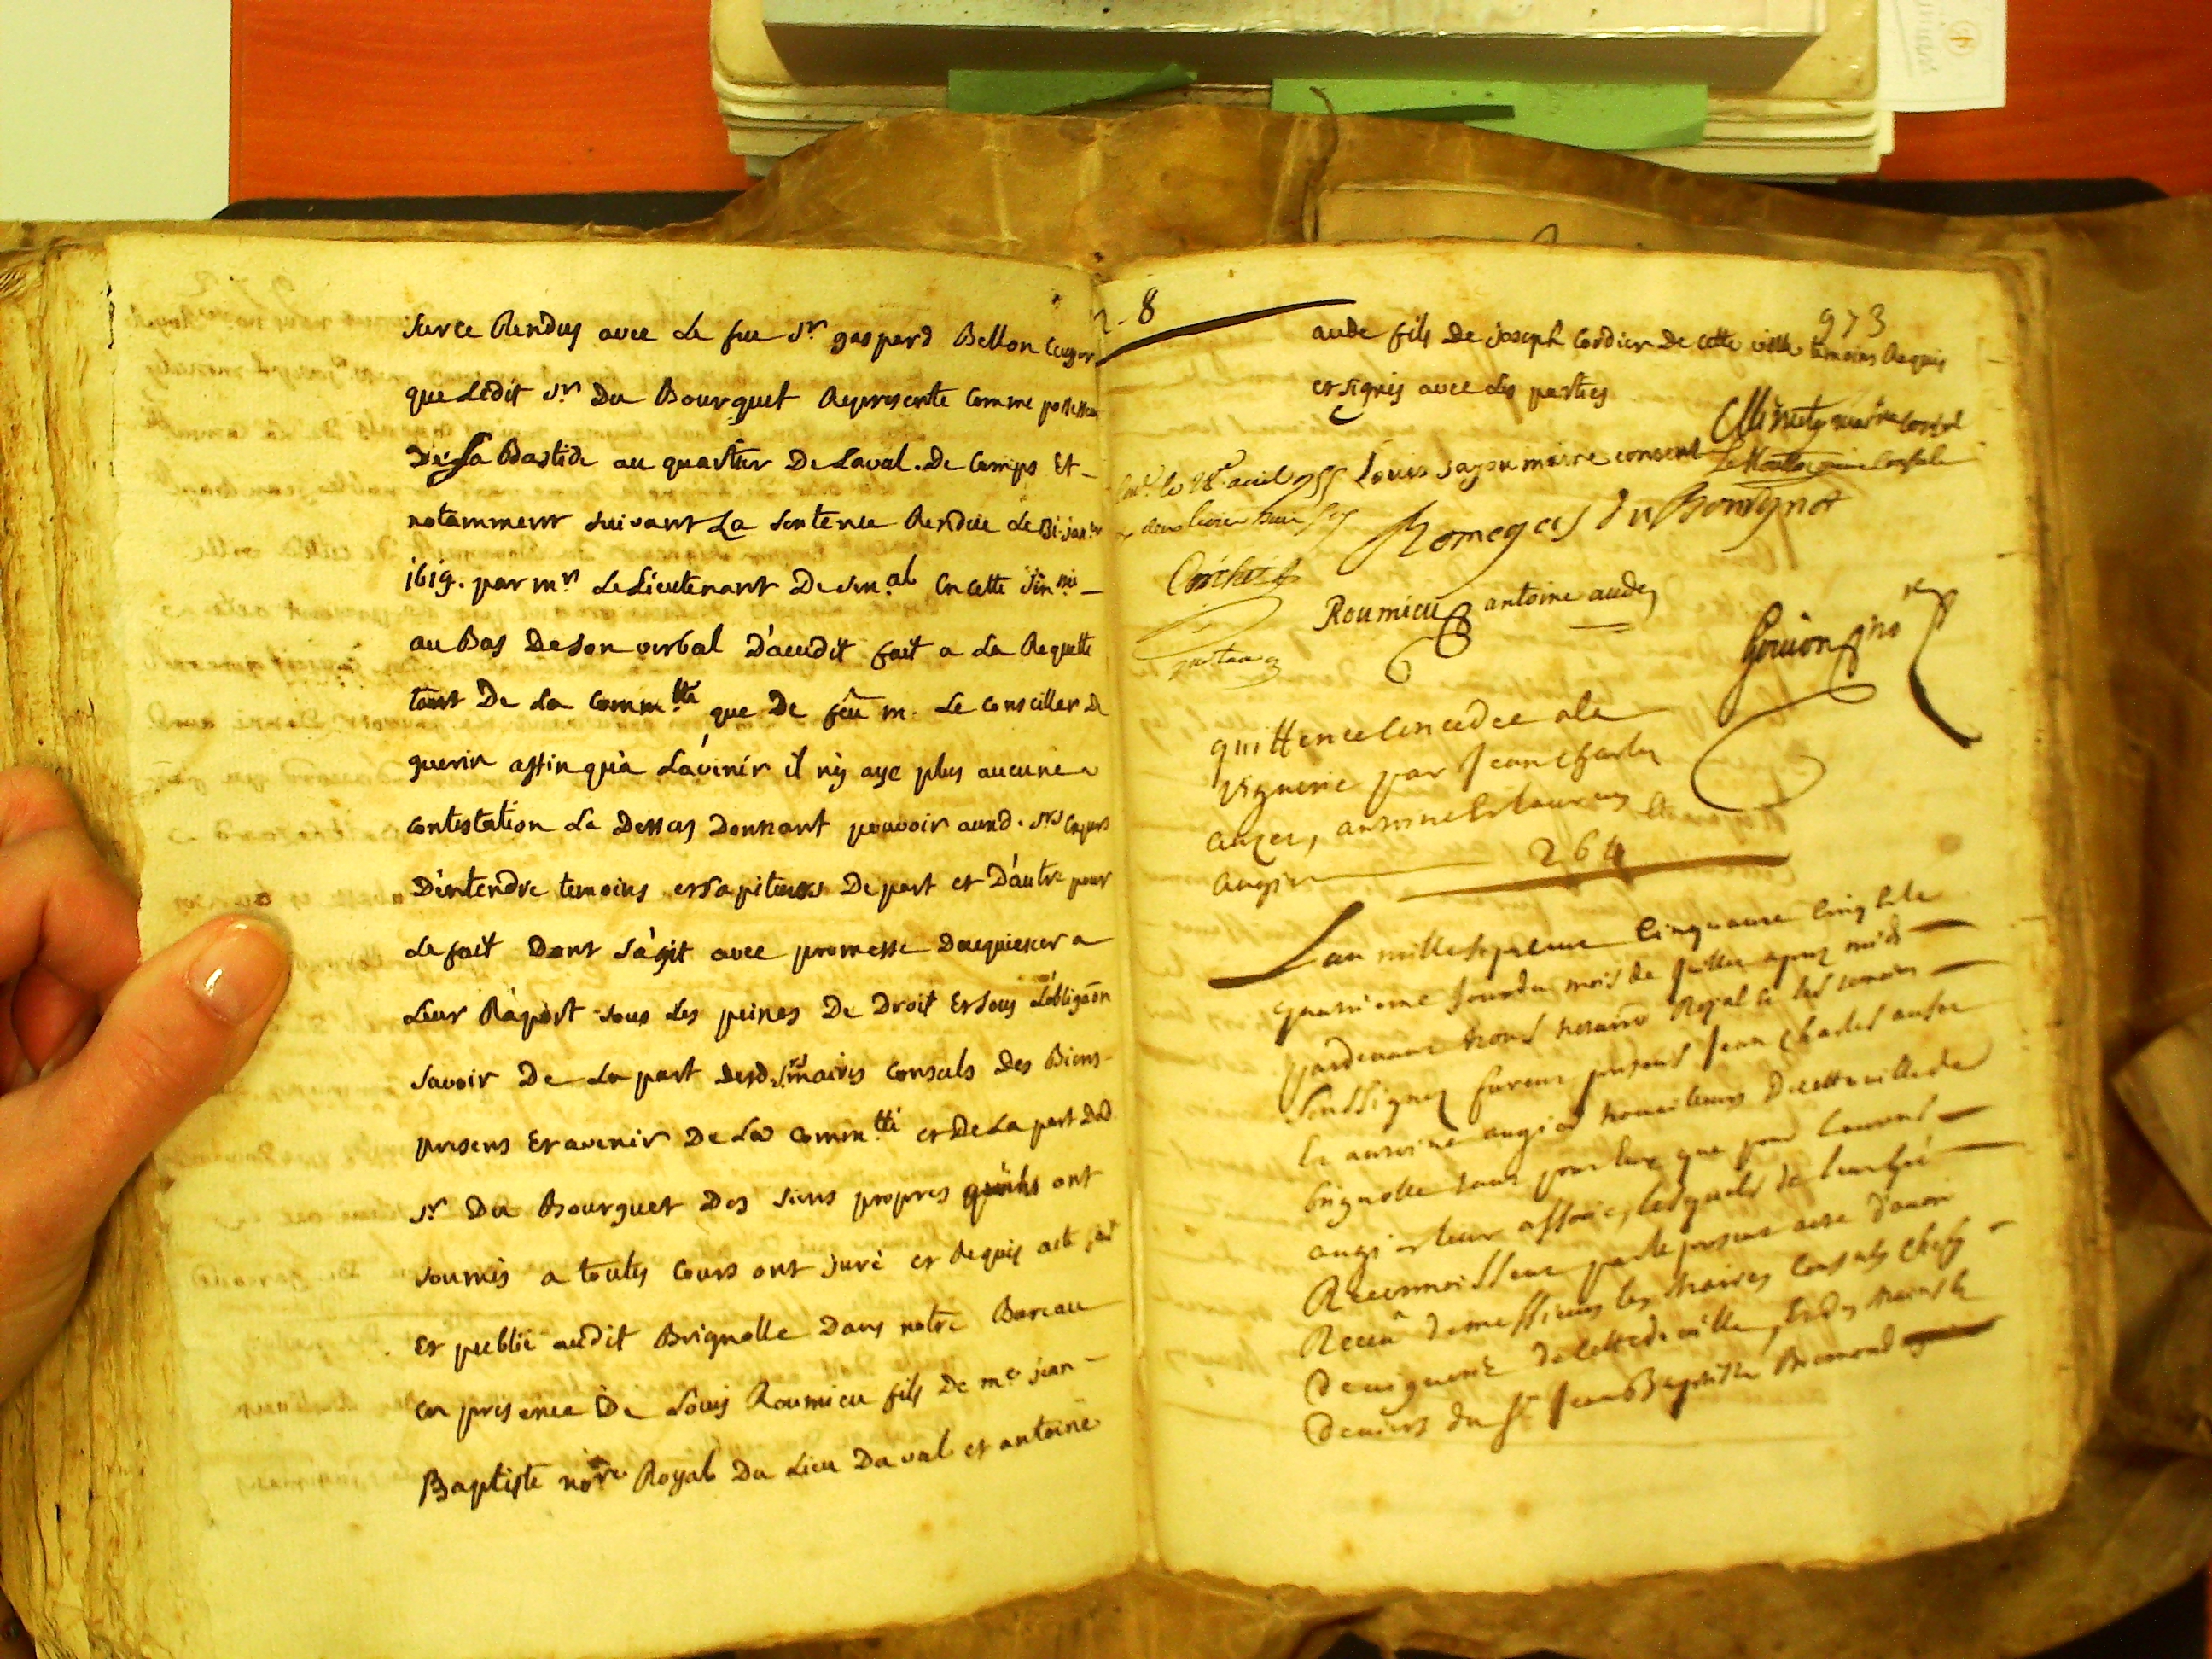 sur ce Rendus avec le feu Sr gaspard Bellon
que Ledit Sr Du Bourguet Represente Comme possesseur
De La Bastide au quartier De Laval. De Camps Et
notamment suivant La sentence Rendüe Le 31. janer
1619. par mr Le Lieutenant De Senal En cette
au Bas De son verbal D'accedit fait a La Requette
tant De La Commtté que De feu m. Le Conseiller De
guerin affin qu'à L'avenir il n'y aye plus aucune
contestation La Dessus Donnant pouvoir auxd. Srs
D'entendre temoins et sapiteurs De part et D'autre pour
Le fait Dont S'agit avec promesse Dacquiescer a
Leur Raport sous Les peines De Droit Et sous L'obligaon
Savoir De La part desd. Srs maires Consuls Des Biens
presens Et avenir De Lad Commtté et De La part Dud
Sr Du Bourguet Des siens propres qu'ils ont
soumis a toutes Cours ont juré et Requis acte fait
Et publié audit Brignolle Dans notre Bureau
En presence De Louis Roumieu fils De me jean
Baptiste nore Royal Du Lieu Du val et antoine
8
973
aude fils De joseph Cordier De cette ville temoins Requis
et signés avec Les parties
Minuty maire Consul
Louis jayou maire consul
Romegas du Bourguet
Roumieu antoine aude
Gouion no
quittence Concedée a la
viguerie par Jean Charles
auzer, antoine Et laurens
augier
264
L'an mille sept cens Cinquante Cinq Et le
quatrieme Jour du mois de Juillet apres midi
pardevant Nous notaire Royal Et les temoins
Soussignez furent presents Jean Charles
Et antoine augier De cette ville de
brignolle tant pour eux que pour Laurens
augier leur associé, lesquels de leur gré
Reconnoissent par le present acte d'avoir
Receu de messieurs les Maires Consuls Chefs
De viguerie de cette de ville, Et des Mains Et
Deniers du Sr Jean Baptiste Bremond